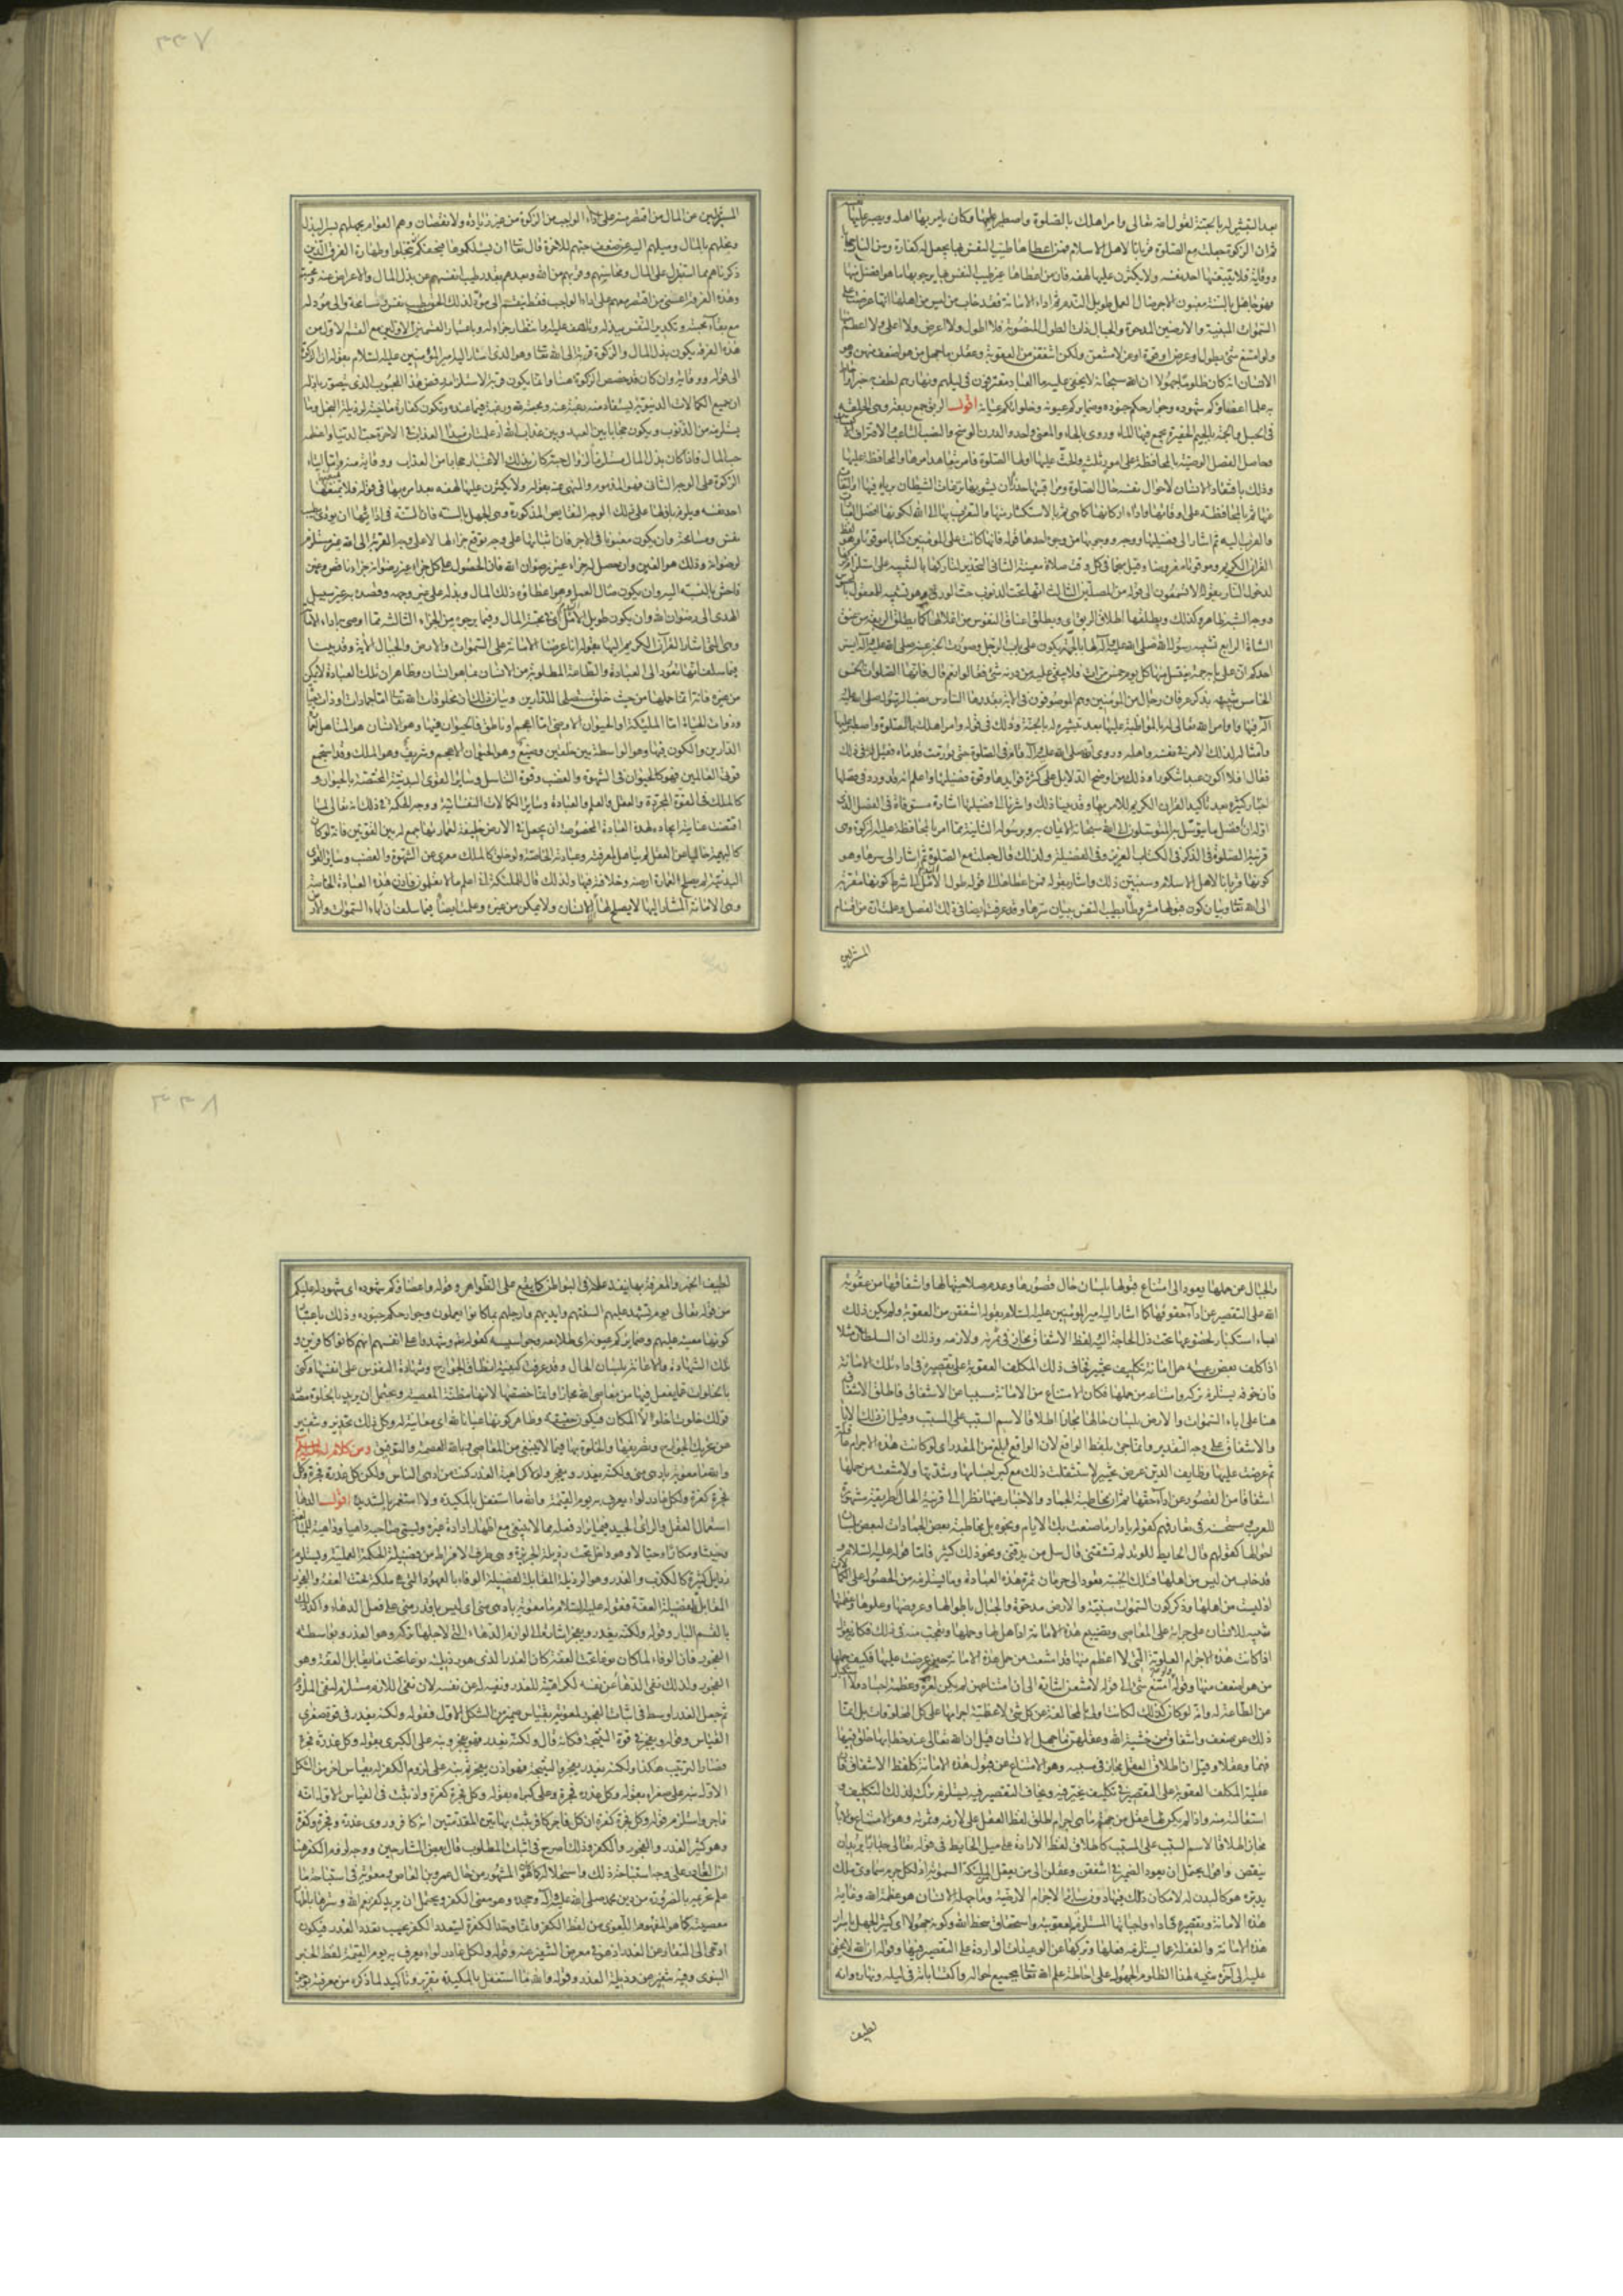 بعد التبشير له بالجنة لقول الله تعالى وامر اهلك بالصلوة واصطبر عليها فكان يامر بها اهله ويصبر عليها نفسه
ثم ان الزكوة جعلت مع الصلوة قربانا لاهل الاسلام فمن اعطاها طيب النفس بها يجعل له كفارة ومن النار حجابا
ووقاية فلا يتبعنها احد نفسه ولا يكثرن عليها لهفه فان من اعطاها غير طيب النفس بها يرجو بها ما هو افضل منها
فهو جاهل بالسنة مغبون الاجر ضال العمل طويل الندم ثم اداء الامانة فقد خاب من ليس من اهلها انها عرضت على
السموات المبنية والارضين المدحوة والجبال ذات الطول المنصوبة فلا اطول ولا اعرض ولا اعلى ولا اعظم منها
ولو امتنع شئ بطول او عرض او قوة او عز لامتنعن ولكن اشفقن من العقوبة وعقلن ما جهل من هو اضعف منهن وهو
الانسان انه كان ظلوما جهولا ان الله سبحانه لا يخفى عليه ما العباد مقترفون فى ليلهم ونهارهم لطف به خبرا واحاط
به علما اعضاؤكم شهوده وجوارحكم جنوده وضمايركم عيونه وخلواتكم عيانه اقول الربق جمع ربقة وهى الحلقة
فى الحبل والجمة بالجيم الحفيرة يجمع فيها الماء وروى بالحاء والمعنى واحد والدرن الوسخ والنصب التعب والاقتراف الاكتساب
وحاصل الفصل الوصية بالمحافظة على امور ثلثة والحث عليها اولها الصلوة فامر بتعاهد امرها والمحافظة عليها
وذلك بافتقاد الانسان لاحوال نفسه حال الصلوة ومراقبتها حذرا ان يشوبها نزغات الشيطان برياء فيها او التفات
عنها ثم بالمحافظة على اوقاتها واداء اركانها كما هى ثم بالاستكثار منها والتقرب بها الى الله لكونها افضل العبادات
والقرب اليه ثم اشار الى فضيلتها ووجه وجوبها من وجوه احدها قوله فانها كانت على المؤمنين كتابا موقوتا وهو لفظ
القران الكريم وموقوتا مفروضا وقيل منجما فى كل وقت صلاة معينة الثانى التحذير لتاركها بالتنبيه على استلزام تركها
لدخول النار بقوله الا تسمعون الى قوله من المصلين الثالث انها تحت الذنوب حت الورق وهو تشبيه للمعقول بالمحسوس
ووجه الشبه ظاهر وكذلك ويطلقها اطلاق الربق اى ويطلق اعناق النفوس من اغلالها كما يطلق الربقة من عنق
الشاة الرابع تشبيه رسول الله صلى الله عليه وآله لها بالجمة يكون على باب الرجل وصورة الخبر عنه صلى الله عليه وآله ايسر
احدكم ان على بابه جمة يغتسل منها كل يوم خمس مرات فلا يبقى عليه من درنه شئ فقالوا نعم قال فانها الصلوات الخمس
الخامس تنبيهه بذكر عرفان رجال من المؤمنين وهم الموصوفون فى الاية بقدرها السادس نصب الرسول صلى الله عليه
وآله فيها وامر الله تعالى له بالمواظبة عليها بعد تبشيره له بالجنة وذلك فى قوله وامر اهلك بالصلوة واصطبر عليها
وامتثاله لذلك الامر فى نفسه واهله وروى انه صلى الله عليه وآله قام فى الصلوة حتى تورمت قدماه فقيل له فى ذلك
فقال افلا اكون عبدا شكورا وذلك من اوضح الدلايل على كثرة فوايدها وقوة فضيلتها واعلم انه قد ورد فى فضلها
اخبار كثيرة بعد تاكيد القران الكريم للامر بها وقد بينا ذلك واشرنا الى فضيلتها اشارة مستوفاة فى الفصل الذى
اوله ان افضل ما يتوسل به المتوسلون الى الله سبحانه الايمان به وبرسوله الثانية مما امر بالمحافظة عليه الزكوة وهى
قرينة الصلوة فى الذكر فى الكتاب العزيز وفى الفضيلة ولذلك قال جعلت مع الصلوة ثم اشار الى سرها وهو
كونها قربانا لاهل الاسلام وسنبين ذلك واشار بقوله فمن اعطاها الى قوله طويل الندم الى شرط كونها مقربة
الى الله تعالى وبيان كون قبولها مشروطا بطيب النفس ببيان سرها وقد عرفت ايضا فى ذلك الفصل وعلمت ان من اقسام
المستنزلين
٣٣٧
المستنزلين عن المال من اقتصر منه على اداء الواجب من الزكوة من غير زيادة ولا نقصان وهم العوام لجهلهم بسر البذل
وبخلهم بالمال وميلهم اليه من ضعف حبهم للاخرة قال تعالى ان يسئلكموها فيحفكم تبخلوا وطهارة الفرق الذين
ذكرناهم مما استنزل على المال ومحاسنهم وقربهم من الله وبعدهم بقدر طيب انفسهم عن بذل المال والاعراض عنه ومحبته
وهذه الفرقة اعنى من اقتصر منهم على اداء الواجب فقط ينقسم الى مؤد لذلك الحق بطيب نفس ومسامحة والى مؤد له
مع بقاء محبته وتكدير النفس ببذله وتلهف عليه او انتظار جزاء له وباعتبار القسمين الاولين مع القسم الاول من
هذه الفرقة يكون بذل المال والزكوة قربة الى الله تعالى وهو الذى اشار اليه امير المؤمنين عليه السلام بقوله ان الزكوة
الى قوله ووقاية وان كان قد خصص الزكوة هنا وانما يكون قربة لاستلزامه رفض هذا المحبوب الذى يتصور باذله
ان جميع الكمالات الدنيوية يستفاد منه رغبة عنه ومحبة لله ورغبة فيما عنده وتكون كفارة ماحية لرذيلة البخل وما
يستلزمه من الذنوب ويكون حجابا بين العبد وبين عذاب الله اذ علمت ان مبدأ العذاب فى الاخرة حب الدنيا واعظمه
حب المال فاذا كان بذل المال مستلزما لزوال حبه كان بذلك الاعتبار حجابا من العذاب ووقاية منه واما ايتاء
الزكوة على الوجه الثانى فهو المذموم والمنهى عنه بقوله ولا يكثرن عليها لهفه بعد امره بها فى قوله فلا يتبعنها
احد نفسه ويلزم باذلها على ذلك الوجه النقايص المذكورة وهى الجهل بالسنة فان السنة فى ادائها ان يؤدى بطيب
نفس ومسامحة وان يكون مغبونا فى الاجر فان ايتائها على وجه توقع جزاء لها لا على وجه القربة الى الله غير مستلزم
لرضوانه وذلك هو الغبن وان حصل له جزاء غير رضوان الله فان الحصول على كل جزاء غير رضوانه جزاء ناقص وغبن
فاحش بالنسبة اليه وان يكون ضال العمل وهو اعطاؤه ذلك المال وبذله على غير وجهه وقصده به غير سبيل
الهدى الى رضوان الله وان يكون طويل الندم اى محبة المال وفيما يرجوه من الجزاء الثالثة مما اوصى باداء الامانة
وهى التى اشار القرآن الكريم اليها بقوله انا عرضنا الامانة على السموات والارض والجبال الاية وقد بينا
فيما سلف انها تعود الى العبادة والطاعة المطلوبة من الانسان بما هو انسان وظاهر ان تلك العبادة لا يمكن
من غيره فانه انما حملها من حيث خلق مستصلحا للدارين وبيان ذلك ان مخلوقات الله تعالى اما جمادات او ذات حياة
وذوات الحياة اما الملئكة او الحيوان الارضى اما اعجم او ناطق فالحيوان فيها وهو الانسان هو المتاهل لعمارة
الدارين والكون فيهما وهو الواسطة بين خلقين وضيع وهو الحيوان الاعجم وشريف وهو الملك وقد استجمع
قوى العالمين فهو كالحيوان فى الشهوة والغضب وقوة التناسل وساير القوى البدنية المختصة بالحيوان و
كالملك فى القوة المجردة والعقل والعلم والعبادة وساير الكمالات النفسانية ووجه الحكمة فى ذلك انه تعالى لما
اقتضت عنايته ايجاده لهذه العبادة المخصوصة ان يجعل فى الارض خليفة لعمارتها جمع له بين القوتين فانه لو كان
كالبهيمة خاليا من العقل لم يتاهل لمعرفته وعبادته الخاصة ولو خلق كالملك معرى عن الشهوة والغضب وساير القوى
البدنية لم يصلح لعمارة ارضه وخلافته فيها ولذلك قال للملئكة انى اعلم ما لا تعلمون فاذن هذه العبادة الخاصة
وهى الامانة المشار اليها لا يصلح لها الا الانسان ولا يمكن من غيره وعلمت ايضا فيما سلف ان اباء السموات والارض
٣٣٨
والجبال عن حملها يعود الى امتناع قبولها بلسان حال قصورها وعدم صلاحيتها لها واشفاقها من عقوبة
الله على التقصير عن اداء حقوقها كما اشار اليه امير المؤمنين عليه السلام بقوله اشفقن من العقوبة ولم يكن ذلك
اباء استكبار لخضوعها تحت ذل الحاجة اليه ولفظ الاشفاق مجاز فى ثمرته ولازمه وذلك ان السلطان مثلا
اذا كلف بعض رعيته حمل امانة تكليف تخيير فخاف ذلك المكلف العقوبة على تقصيره فى اداء تلك الامانة
فان خوفه يستلزم تركه وامتناعه من حملها فكان الامتناع من الامانة مسببا عن الاشفاق فاطلق الاشفاق
هنا على اباء السموات والارض بلسان حالها مجازا اطلاقا لاسم السبب على المسبب وقيل ان ذلك الاباء
والاشفاق على وجه التقدير وانما جئ بلفظ الواقع لان الواقع ابلغ من المقدر اى لو كانت هذه الاجرام عاقلة
ثم عرضت عليها وظايف الدين عرض تخيير لاستثقلت ذلك مع كبر اجسامها وشدتها ولامتنعت من حملها
اشفاقا من القصور عن اداء حقها ثم ان مخاطبة الجماد والاخبار عنها نظرا الى قرينة الحال طريقة مشهورة
للعرب ومستحسنة فى تعارفهم كقولهم يا دار ما صنعت بك الايام ونحوه بل مخاطبة بعض الجمادات لبعض بلسان
احوالها كقولهم قال الحايط للوتد لم تشقنى قال سل من يدقنى ونحو ذلك كثير فاما قوله عليه السلام و
قد خاب من ليس من اهلها فتلك الخيبة تعود الى حرمان ثمرة هذه العبادة وما يستلزمه من الحصول على الكمالات
اذ ليست من اهلها وذكر كون السموات مبنية والارض مدحوة والجبال باطوالها وعروضها وعلوها وعظمتها
تنبيه للانسان على جرأته على المعاصى وتضييع هذه الامانة اذ اهل لها وحملها وتعجب منه فى ذلك فكانه يقول
اذا كانت هذه الاجرام العلوية التى لا اعظم منها قد امتنعت من حمل هذه الامانة حين عرضت عليها فكيف حملها
من هو اضعف منها وقوله ولو امتنع شئ الى قوله لامتنعن اشارة الى ان امتناعهن لم يكن لعزة وعظمة اجساد ولا استكبار
عن الطاعة له وانه لو كان كذلك لكانت اولى بالمخالفة عن كل شئ لاعظمية اجرامها على كل المخلوقات بل انما
ذلك عن ضعف واشفاق من خشية الله وعقلهن ما جهل الانسان قيل ان الله تعالى عند خطابها خلق فيها
فهما وعقلا وقيل ان اطلاق العقل مجاز فى سببه وهو الامتناع عن قبول هذه الامانة كلفظ الاشفاق فان
عقلية المكلف العقوبة على التقصير فى تكليف يخير فيه ويخاف التقصير فيه يستلزم تركه لذلك التكليف و
استقالته منه واذا لم يكن لها عقل من جهة ما هى اجرام اطلق لفظ العقل على لازمه وثمرته وهو الامتناع والاباء
مجازا اطلاقا لاسم السبب على المسبب كاطلاق لفظ الارادة على ميل الحايط فى قوله تعالى جدارا يريد ان
ينقض واقول يحتمل ان يعود الضمير فى اشفقن وعقلن الى من يعقل من الملئكة السموية اذ لكل جرم سماوى ملك
يدبره هو كالبدن له لامكان ذلك فيها دون ساير الاجرام الارضية وما جهله الانسان هو عظمة الله وغاية
هذه الامانة وتقصيره فى اداء واجباتها المستلزم لعقوبته واستحقاق سخط الله وكونه جهولا اى كثير الجهل باسرار
هذه الامانة والغفلة عما يستلزمه فعلها وتركها عن الوعيدات الواردة على التقصير فيها وقوله ان الله لا يخفى
عليه الى آخره تنبيه لهذا الظلوم الجهول على احاطة علم الله تعالى بجميع احواله واكتساباته فى ليله ونهاره وانه
لطيف
لطيف الخبر والمعرفة بها ينفذ علمه فى البواطن كما يقع على الظواهر وقوله واعضاؤكم شهوده اى شهود له عليكم
من قوله تعالى يوم تشهد عليهم السنتهم وايديهم وارجلهم بما كانوا يعملون وجوارحكم جنوده وذلك باعتبار
كونها معينة عليهم وضمايركم عيونه اى طلايعه وجواسيسه كقوله تعالى وشهدوا على انفسهم انهم كانوا كافرين و
تلك الشهادة والاعانة بلسان الحال وقد عرفت كيفية انطاق الجوارح وشهادة النفوس على انفسها وكنى
بالخلوات عما يفعل فيها من معاصى الله مجازا وانما خصصها لانها مظنة المعصية ويحتمل ان يريد بالخلوة مصدر
قولك خلوت اخلو لا المكان فيكون حقيقة وظاهر كونها عيانا لله اى معاينة له وكل ذلك تحذير وتنفير
عن تحريك الجوارح وتصريفها والخلوة بها فيما لا ينبغى من المعاصى وبالله العصمة والتوفيق ومن كلام له عليه السلام
والله ما معوية بادهى منى ولكنه يغدر ويفجر ولولا كراهية الغدر كنت من ادهى الناس ولكن كل غدرة فجرة وكل
فجرة كفرة ولكل غادر لواء يعرف به يوم القيمة والله ما استغفل بالمكيدة ولا استغمز بالشديدة اقول الدهاء
استعمال العقل والراى الجيد فيما يراد فعله مما لا ينبغى مع اظهار ارادة غيره ويسمى صاحبه داهيا وداهية للمبالغة
وخبيثا ومكارا وحيالا وهو داخل تحت رذيلة الجربزة وهى طرف الافراط من فضيلة الحكمة العملية ويستلزم
رذايل كثيرة كالكذب والغدر وهو الرذيلة المقابلة لفضيلة الوفاء بالعهود التى هى ملكة تحت العفة والفجور
المقابل لفضيلة العفة فقوله عليه السلام ما معوية بادهى منى اى ليس باقدر منى على فعل الدهاء واكد ذلك
بالقسم البار وقوله ولكنه يغدر ويفجر اشارة الى لوازم الدهاء التى لاجلها تركه وهو الغدر وبواسطته
الفجور فان الوفاء لما كان نوعا تحت العفة كان الغدر الذى هو رذيلته نوعا تحت ما يقابل العفة وهو
الفجور ولذلك نفى الدهاء عن نفسه لكراهيته للغدر ونفيه له عن نفسه لان نفى اللازم مستلزم لنفى الملزوم
ثم جعل الغدر اوسط فى اثبات الفجور لمعوية بقياس ضمير من الشكل الاول فقوله ولكنه يغدر فى قوة صغرى
القياس وقوله ويفجر فى قوة النتيجة فكانه قال ولكنه يغدر فهو يفجر ونبه على الكبرى بقوله وكل غدرة فجرة
فصار الترتيب هكذا ولكنه يغدر ويفجر والنتيجة فهو اذن يفجر ثم نبه على لزوم الكفر له بقياس اخر من الشكل
الاول نبه على صغراه بقوله وكل غدرة فجرة وعلى كبراه بقوله وكل فجرة كفرة واذ ثبت فى القياس الاول انه
فاجر واستلزم قوله وكل فجرة كفرة ان كل فاجر كافر ثبت بهاتين المقدمتين انه كافر وروى غدرة وفجرة وكفرة
وهو كثير الغدر والفجور والكفر وذلك اصرح فى اثبات المطلوب قال بعض الشارحين ووجه لزوم الكفر هنا
ان الغادر على وجه استباحة ذلك واستحلاله كما كان هو المشهور من حال عمرو بن العاص ومعوية فى استباحة ما
علم تحريمه بالضرورة من دين محمد صلى الله عليه وآله وجحده وهو معنى الكفر ويحتمل ان يريد كفر نعم الله وسترها باظهار
معصيته كما هو المفهوم اللغوى من لفظ الكفر وانما وحد الكفرة ليتعدد الكفر بحسب تعدد الغدر فيكون
ادعى الى النفار عن الغدر اذ هو فى معرض التنفير عنه وقوله ولكل غادر لواء يعرف به يوم القيمة لفظ الخبر
النبوى وفيه تنفير عن رذيلة الغدر وقوله والله ما استغفل بالمكيدة تقرير وتاكيد لما ذكره من معرفته بوجوه